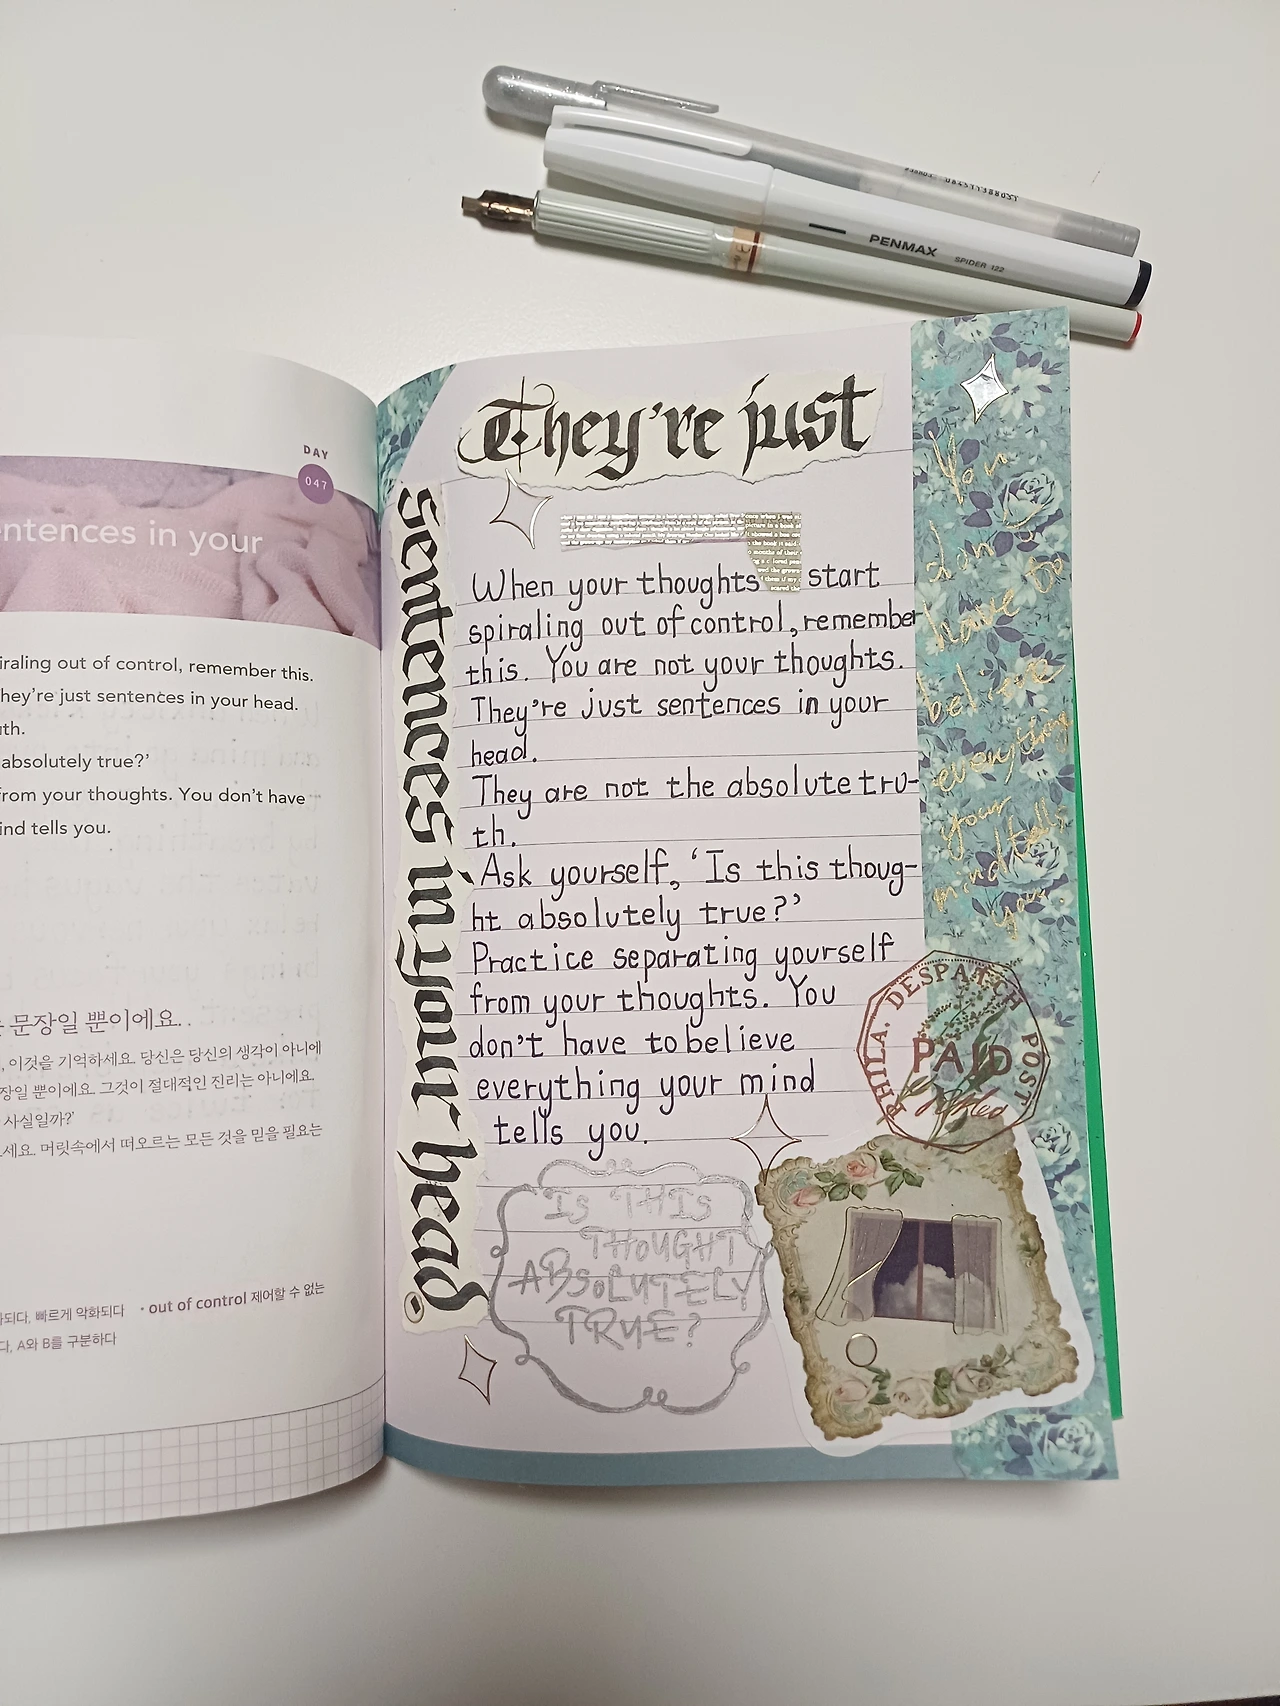 PENMAX SPIDER 122
DAY
047
entences in your
iraling out of control, remember this.
hey're just sentences in your head.
uth.
absolutely true?'
from your thoughts. You don't have
ind tells you.
문장일 뿐이에요..
, 이것을 기억하세요. 당신은 당신의 생각이 아니에
장일 뿐이에요. 그것이 절대적인 진리는 아니에요.
사실일까?'
세요. 머릿속에서 떠오르는 모든 것을 믿을 필요는
되다, 빠르게 악화되다 • out of control 제어할 수 없는
다, A와 B를 구분하다
They're just
sentences in your head.
When your thoughts start
spiraling out of control, remember
this. You are not your thoughts.
They're just sentences in your
head.
They are not the absolute tru-
th.
Ask yourself, 'Is this thoug-
ht absolutely true?'
Practice separating yourself
from your thoughts. You
don't have to believe
everything your mind
tells you.
IS THIS
THOUGHT
ABSOLUTELY
TRUE?
You
don't
have to
believe
everything
your
mind tells
you.
PHILA. DESPATCH POST
PAID